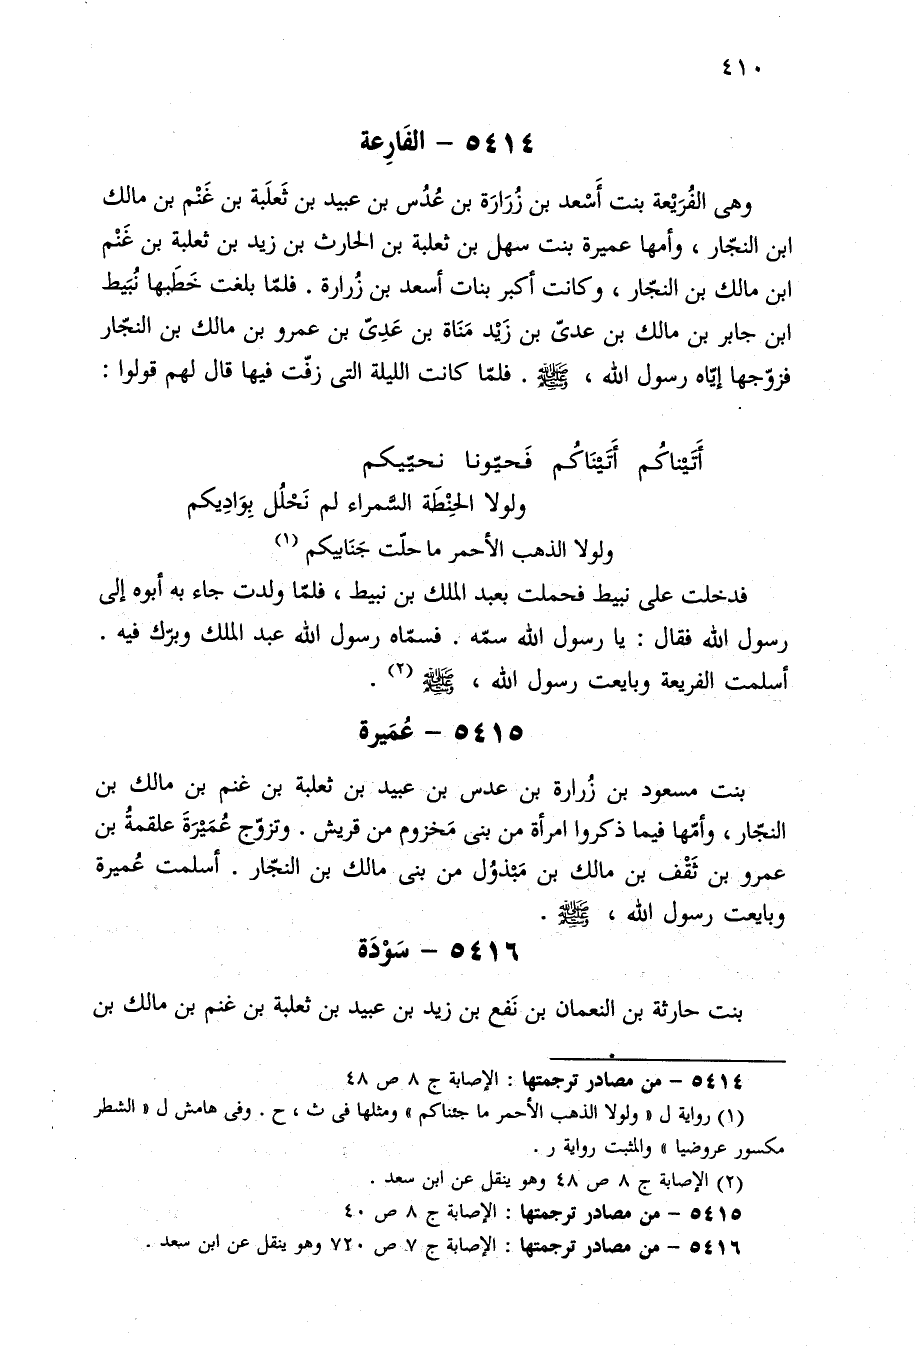 ٤١٠
٥٤١٤ – الفَارِعة
وهى الفُرَيْعة بنت أَسْعد بن زُرَارَة بن عُدُس بن عبيد بن ثَعلَبة بن غَنْم بن مالك
ابن النجّار ، وأمها عميرة بنت سهل بن ثعلبة بن الحارث بن زيد بن ثعلبة بن غَنْم
ابن مالك بن النجّار ، وكانت أكبر بنات أسعد بن زُرارة . فلمّا بلغت خَطَبها نُبَيط
ابن جابر بن مالك بن عدىّ بن زَيْد مَنَاة بن عَدِىّ بن عمرو بن مالك بن النجّار
فزوّجها إيّاه رسول الله ، ﷺ . فلمّا كانت الليلة التى زفّت فيها قال لهم قولوا :
أَتَيْناكُم أَتَيْنَاكُم فَحيّونا نحيّيكم
ولولا الحِنْطَة السَّمراء لم نَحْلُل بِوَادِيكم
ولولا الذهب الأحمر ما حلّت جَنَابيكم (١)
فدخلت على نبيط فحملت بعبد الملك بن نبيط ، فلمّا ولدت جاء به أبوه إلى
رسول الله فقال : يا رسول الله سمّه . فسمّاه رسول الله عبد الملك وبرّك فيه .
أسلمت الفريعة وبايعت رسول الله ، ﷺ (٢) .
٥٤١٥ – عُمَيرة
بنت مسعود بن زُرارة بن عدس بن عبيد بن ثعلبة بن غنم بن مالك بن
النجّار ، وأمّها فيما ذكروا امرأة من بنى مَخزوم من قريش . وتزوّج عُمَيْرَةَ علقمةُ بن
عمرو بن ثَقْف بن مالك بن مَبْذوُل من بنى مالك بن النجّار . أسلمت عُميرة
وبايعت رسول الله ، ﷺ .
٥٤١٦ – سَوْدَة
بنت حارثة بن النعمان بن نَفع بن زيد بن عبيد بن ثعلبة بن غنم بن مالك بن
٥٤١٤ – من مصادر ترجمتها : الإصابة ج ٨ ص ٤٨
(١) رواية ل « ولولا الذهب الأحمر ما جئناكم » ومثلها فى ث ، ح . وفى هامش ل « الشطر
مكسور عروضيا » والمثبت رواية ر .
(٢) الإصابة ج ٨ ص ٤٨ وهو ينقل عن ابن سعد .
٥٤١٥ – من مصادر ترجمتها : الإصابة ج ٨ ص ٤٠
٥٤١٦ – من مصادر ترجمتها : الإصابة ج ٧ ص ٧٢٠ وهو ينقل عن ابن سعد .